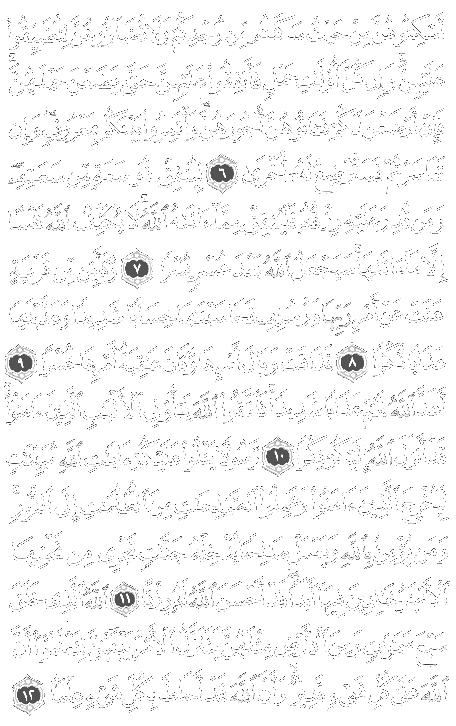 أَسْكِنُوهُنَّ مِنْ حَيْثُ سَكَنتُم مِّن وُجْدِكُمْ وَلَا تُضَارُّوهُنَّ لِتُضَيِّقُوا۟
عَلَيْهِنَّ ۚ وَإِن كُنَّ أُو۟لَٰتِ حَمْلٍ فَأَنفِقُوا۟ عَلَيْهِنَّ حَتَّىٰ يَضَعْنَ حَمْلَهُنَّ ۚ
فَإِنْ أَرْضَعْنَ لَكُمْ فَـَٔاتُوهُنَّ أُجُورَهُنَّ ۖ وَأْتَمِرُوا۟ بَيْنَكُم بِمَعْرُوفٍ ۖ وَإِن
تَعَاسَرْتُمْ فَسَتُرْضِعُ لَهُۥٓ أُخْرَىٰ ٦ لِيُنفِقْ ذُو سَعَةٍ مِّن سَعَتِهِۦ ۖ
وَمَن قُدِرَ عَلَيْهِ رِزْقُهُۥ فَلْيُنفِقْ مِمَّآ ءَاتَىٰهُ ٱللَّهُ ۚ لَا يُكَلِّفُ ٱللَّهُ نَفْسًا
إِلَّا مَآ ءَاتَىٰهَا ۚ سَيَجْعَلُ ٱللَّهُ بَعْدَ عُسْرٍ يُسْرًا ٧ وَكَأَيِّن مِّن قَرْيَةٍ
عَتَتْ عَنْ أَمْرِ رَبِّهَا وَرُسُلِهِۦ فَحَاسَبْنَٰهَا حِسَابًا شَدِيدًا وَعَذَّبْنَٰهَا
عَذَابًا نُّكْرًا ٨ فَذَاقَتْ وَبَالَ أَمْرِهَا وَكَانَ عَٰقِبَةُ أَمْرِهَا خُسْرًا ٩
أَعَدَّ ٱللَّهُ لَهُمْ عَذَابًا شَدِيدًا ۖ فَٱتَّقُوا۟ ٱللَّهَ يَٰٓأُو۟لِى ٱلْأَلْبَٰبِ ٱلَّذِينَ ءَامَنُوا۟ ۚ
قَدْ أَنزَلَ ٱللَّهُ إِلَيْكُمْ ذِكْرًا ١٠ رَّسُولًا يَتْلُوا۟ عَلَيْكُمْ ءَايَٰتِ ٱللَّهِ مُبَيِّنَٰتٍ
لِّيُخْرِجَ ٱلَّذِينَ ءَامَنُوا۟ وَعَمِلُوا۟ ٱلصَّٰلِحَٰتِ مِنَ ٱلظُّلُمَٰتِ إِلَى ٱلنُّورِ ۚ
وَمَن يُؤْمِنۢ بِٱللَّهِ وَيَعْمَلْ صَٰلِحًا يُدْخِلْهُ جَنَّٰتٍ تَجْرِى مِن تَحْتِهَا
ٱلْأَنْهَٰرُ خَٰلِدِينَ فِيهَآ أَبَدًا ۖ قَدْ أَحْسَنَ ٱللَّهُ لَهُۥ رِزْقًا ١١ ٱللَّهُ ٱلَّذِى خَلَقَ
سَبْعَ سَمَٰوَٰتٍ وَمِنَ ٱلْأَرْضِ مِثْلَهُنَّ يَتَنَزَّلُ ٱلْأَمْرُ بَيْنَهُنَّ لِتَعْلَمُوٓا۟ أَنَّ
ٱللَّهَ عَلَىٰ كُلِّ شَىْءٍ قَدِيرٌ وَأَنَّ ٱللَّهَ قَدْ أَحَاطَ بِكُلِّ شَىْءٍ عِلْمًۢا ١٢